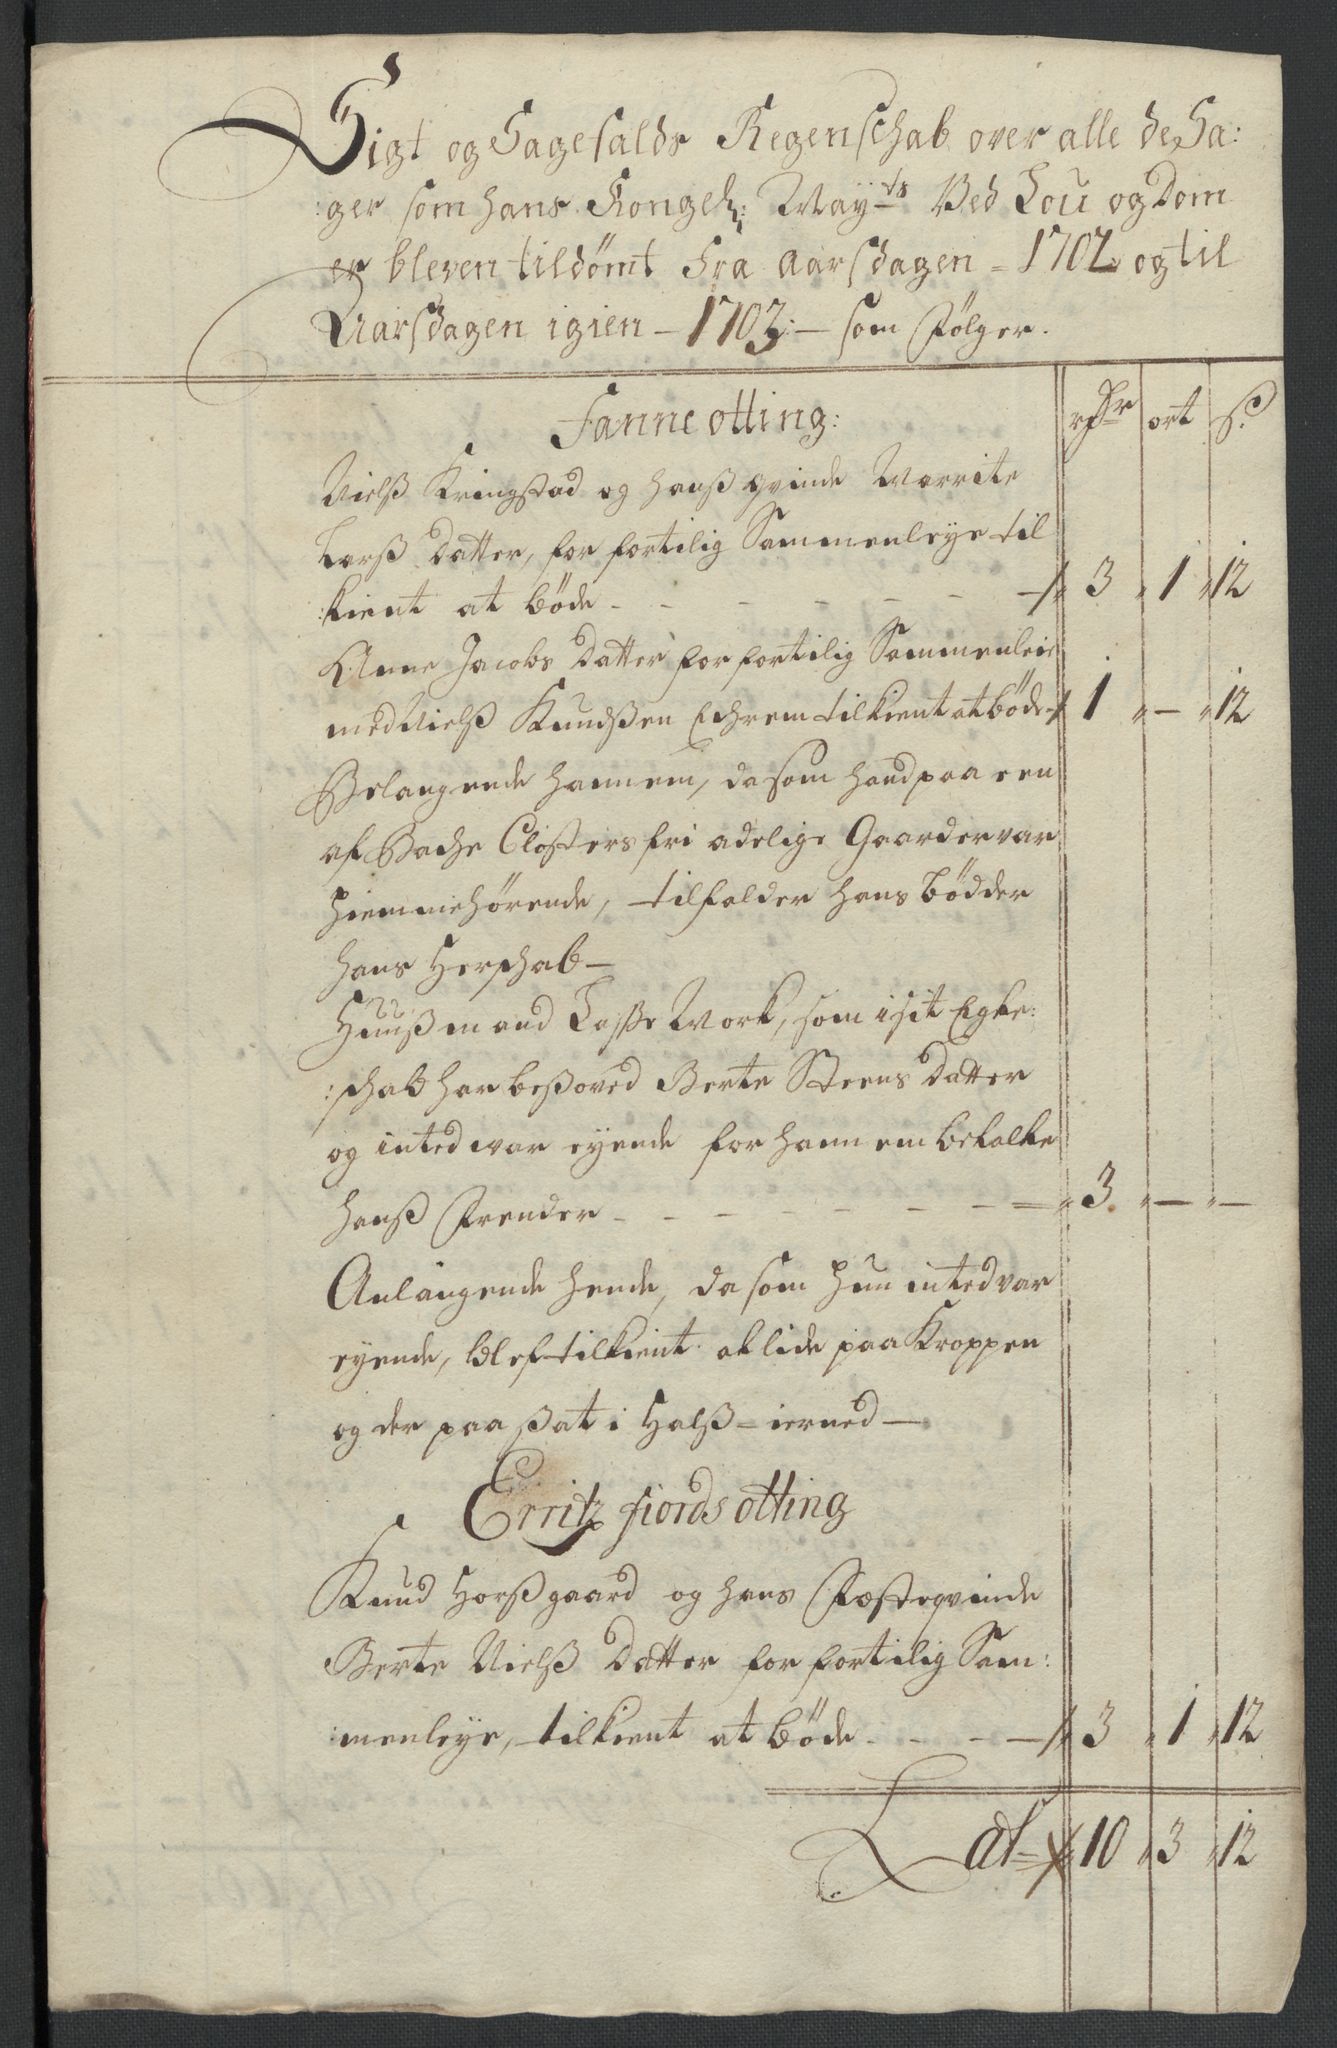 Sigt og Sagefalds Regenschab over alle de Sa:
:ger som hans Kongel: May:ts Ved Lou og Dom
er bleven tildømt Fra Aarsdagen = 1702. og til
Aarsdagen igien – 1703: – som følger.
Fanne otting:
rdr ort s.
Nielß Kringstad og hanß qvinde Marrite
Larß Datter, for fortilig Sammenleye til
:kient at bøde - - - - - - 3 " 1 " 12
Anne Jacobs Datter for fortilig Sammenleie
med Nielß Knudßen Echrem tilkient at bøde 1 " – " 12
Belangende hannem, da som hand paa een
af Bache Closters fri adelige Gaarder var
hiemmehørende, tilfalder hans bødder
hans Herschab –
Huußmand Lasse Work, som i sit Egte:
:schab har besoved Berte Steens Datter
og inted war eyende for hannem betalte
hanß Frender - - - - - - - 3. " – " –
Anlangende hende, da som hun inted var
eyende, blef tilkient at lide paa Kroppen
og der paa sat i Halß = ierned –
Erritz fiords otting
Knud Horßgaard og hans Festeqvinde
Berte Nielß Datter for fortilig Sam:
:menleye, tilkient at bøde - - - - 3 " 1 " 12
Lat = 10 " 3 " 12